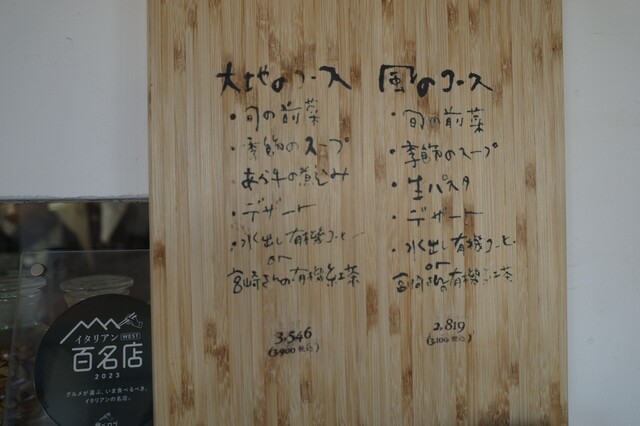 大地のコース
・旬の前菜
・季節のスープ
あか牛の煮込み
・デザート
・水出し有機コーヒー
or
宮崎さんの有機紅茶
3,546
(3,900 税込)
風のコース
・旬の前菜
・季節のスープ
・生パスタ
・デザート
・水出し有機コーヒー
or
宮崎さんの有機紅茶
2,819
(3,100 税込)
イタリアン WEST
百名店
2023
グルメが選ぶ、いま食べるべき、
イタリアンの名店。
食べログ